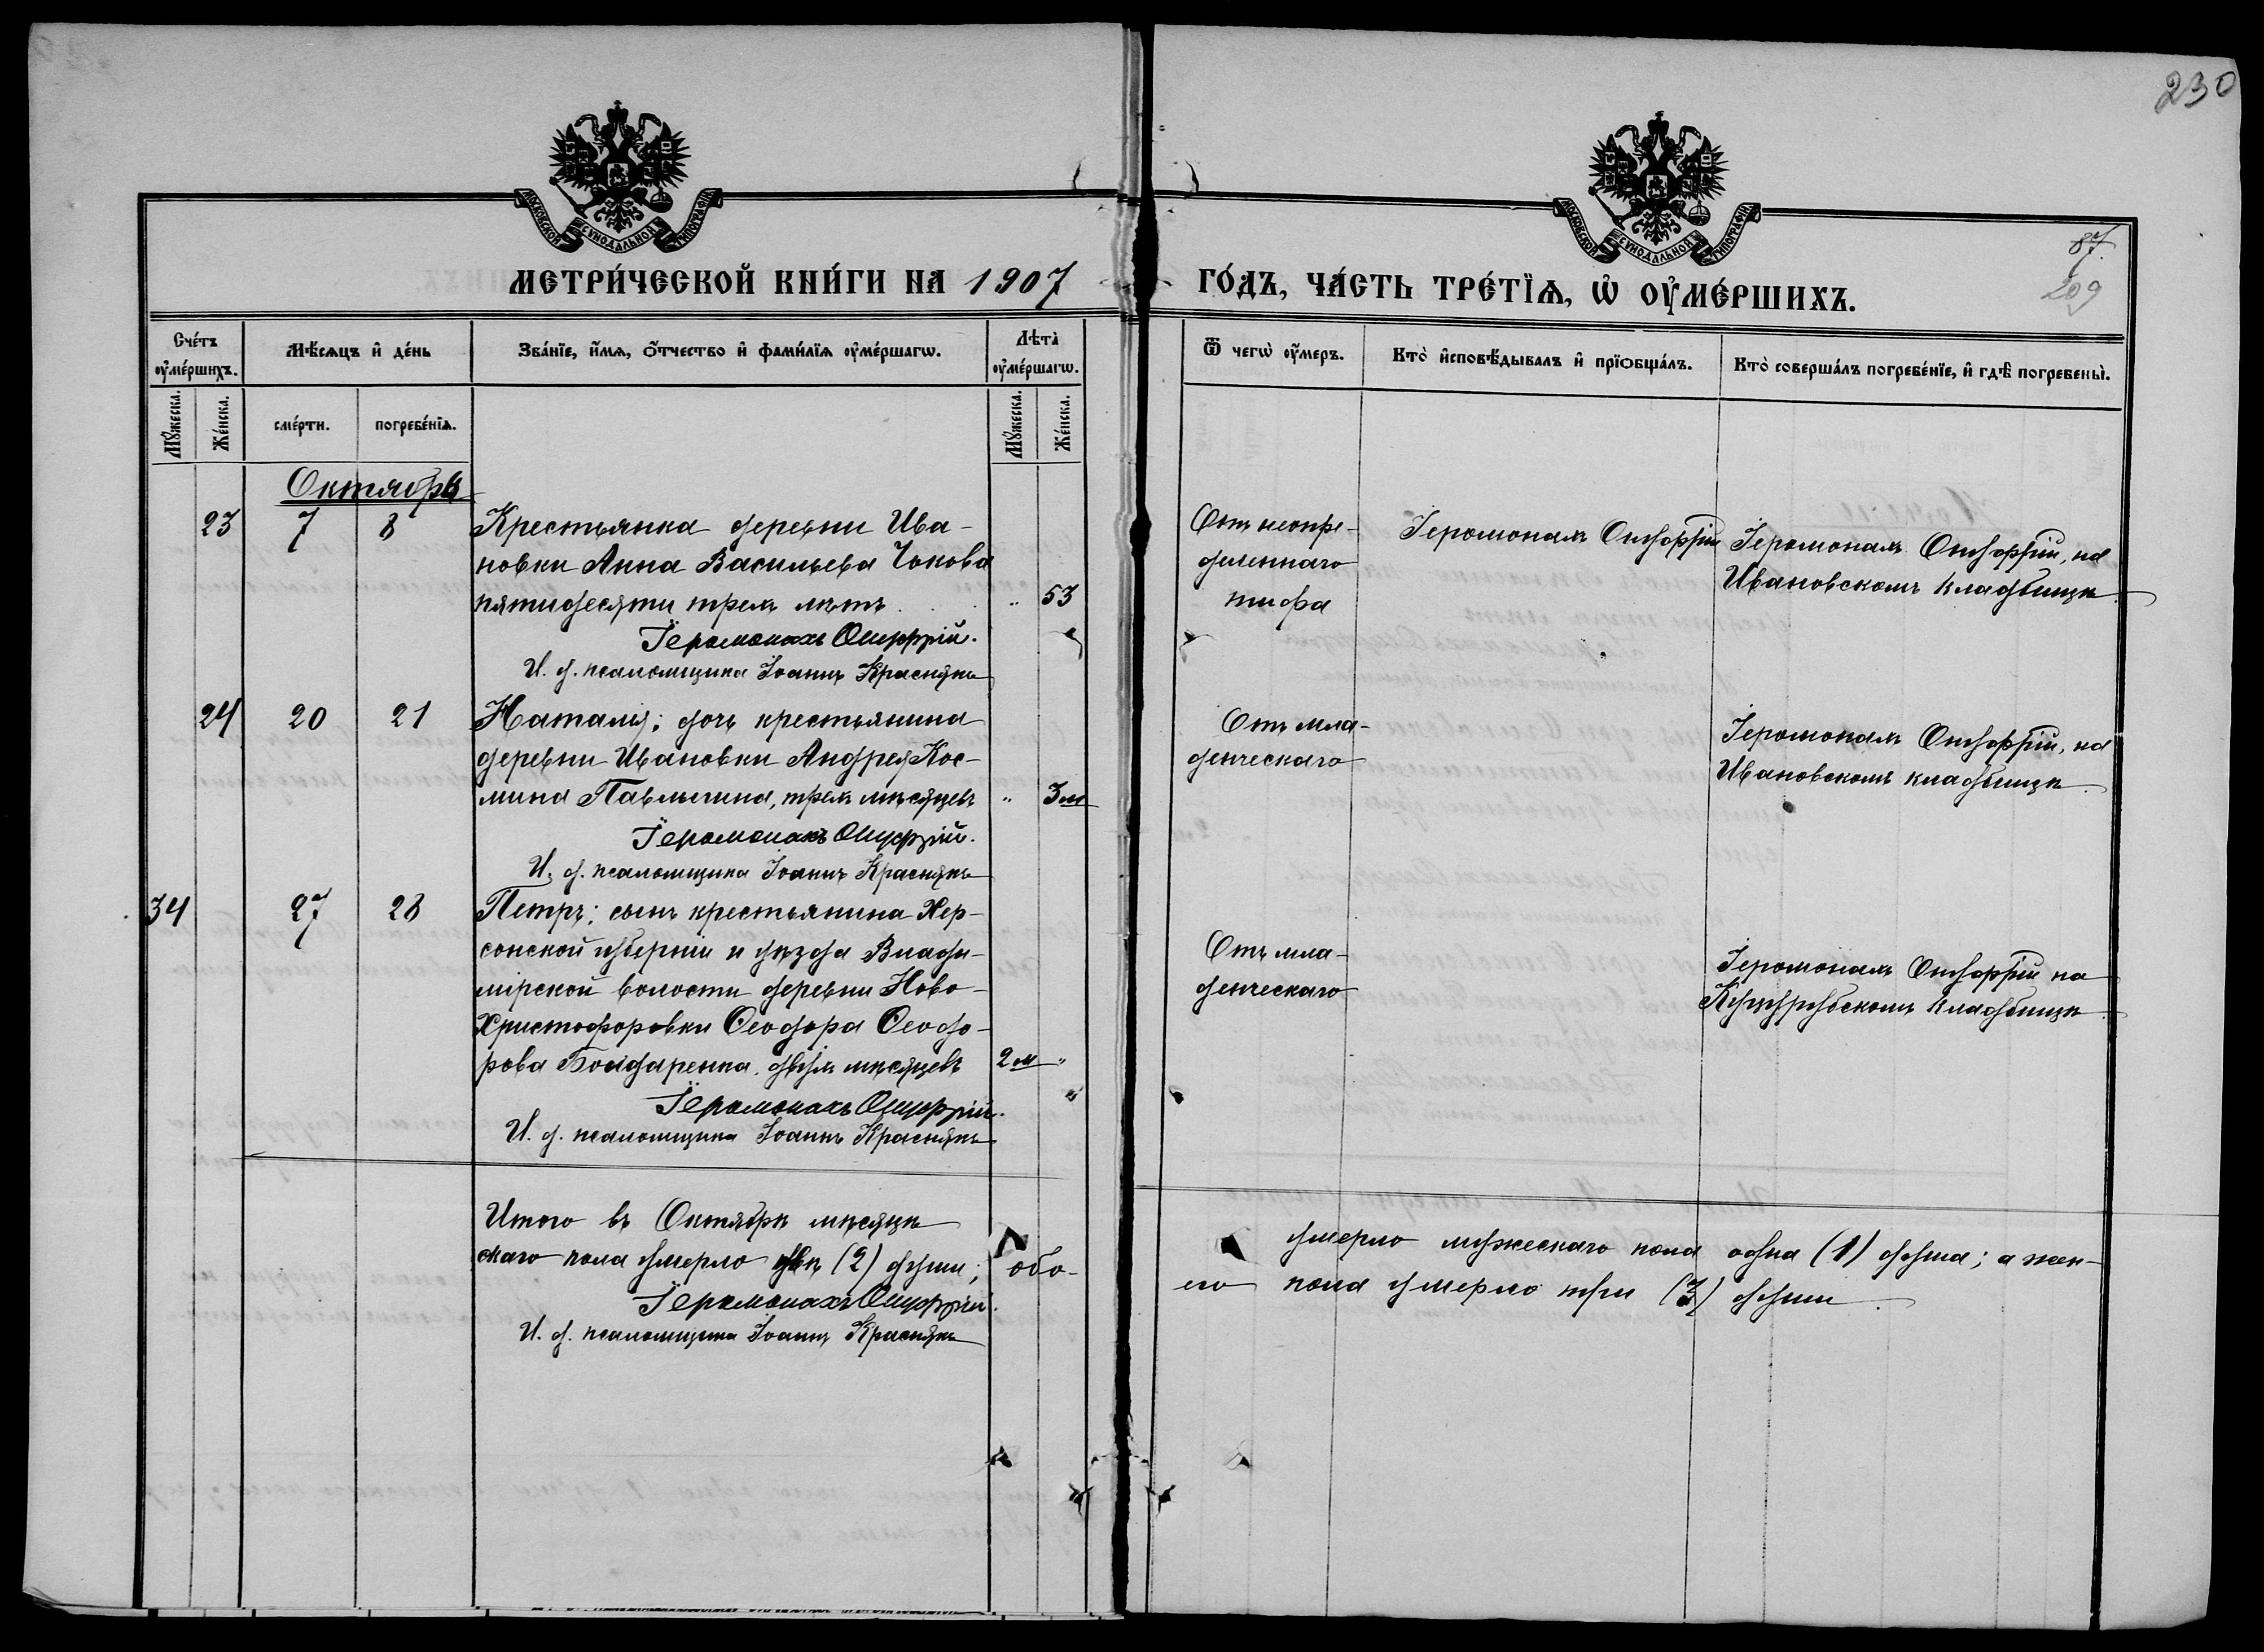 230
МОСКОВСКОЙ СѴНОДАЛЬНОЙ ТИПОГРАФІИ
МОСКОВСКОЙ СѴНОДАЛЬНОЙ ТИПОГРАФІИ
87.
209
МЕТРИ́ЧЕСКОЙ КНИ́ГИ НА 1907 ГО́ДЪ, ЧА́СТЬ ТРЕ́ТЇѦ, Ѡ҆ ОУ҆МЕ́РШИХЪ.
Сче́тъ оу҆ме́ршихъ.
Мѣ́сѧцъ и҆ де́нь
Зва́нїе, и҆́мѧ, ѻ҆́тчество и҆ фами́лїѧ оу҆ме́ршагѡ.
Лѣ́та оу҆ме́ршагѡ.
Ѿ чегѡ̀ оу҆́меръ.
Кто̀ и҆сповѣ́дывалъ и҆ прїѻбща́лъ.
Кто̀ соверша́лъ погребе́нїе, и҆ гдѣ̀ погребены̀.
Мꙋ́жеска.
Же́нска.
сме́рти.
погребе́нїѧ.
Мꙋ́жеска.
Же́нска.
Октябрь
23 7 8 Крестьянка деревни Ива-
новки Анна Васильева Чокова
пятидесяти трехъ лѣтъ . . . " 53
Іеромонахъ Онуфрій.
И. д. псаломщика Іоаннъ Краснякъ
Отъ неопре-
деленнаго
тифа
Іеромонахъ Онуфрій
Іеромонахъ Онуфрій, на
Ивановскомъ кладбищѣ.
24 20 21 Наталія; дочь крестьянина
деревни Ивановки Андрея Кос-
мина Павлычина, трехъ мѣсяцевъ " 3 м
Іеромонахъ Онуфрій.
И. д. псаломщика Іоаннъ Краснякъ
Отъ мла-
денческаго
Іеромонахъ Онуфрій, на
Ивановскомъ кладбищѣ.
34 27 28 Петръ; сынъ крестьянина Хер-
сонской губерніи и уѣзда Влади-
мірской волости деревни Ново-
Христофоровки Ѳеодора Ѳеодо-
рова Бондаренка, двухъ мѣсяцевъ 2 м "
Іеромонахъ Онуфрій.
И. д. псаломщика Іоаннъ Краснякъ
Отъ мла-
денческаго
Іеромонахъ Онуфрій на
кладбищѣ.
Итого въ Октябрѣ мѣсяцѣ умерло мужескаго пола одна (1) душа; а жен-
скаго пола умерло двѣ (2) души; обо-его пола умерло три (3) души.
Іеромонахъ Онуфрій.
И. д. псаломщика Іоаннъ Краснякъ